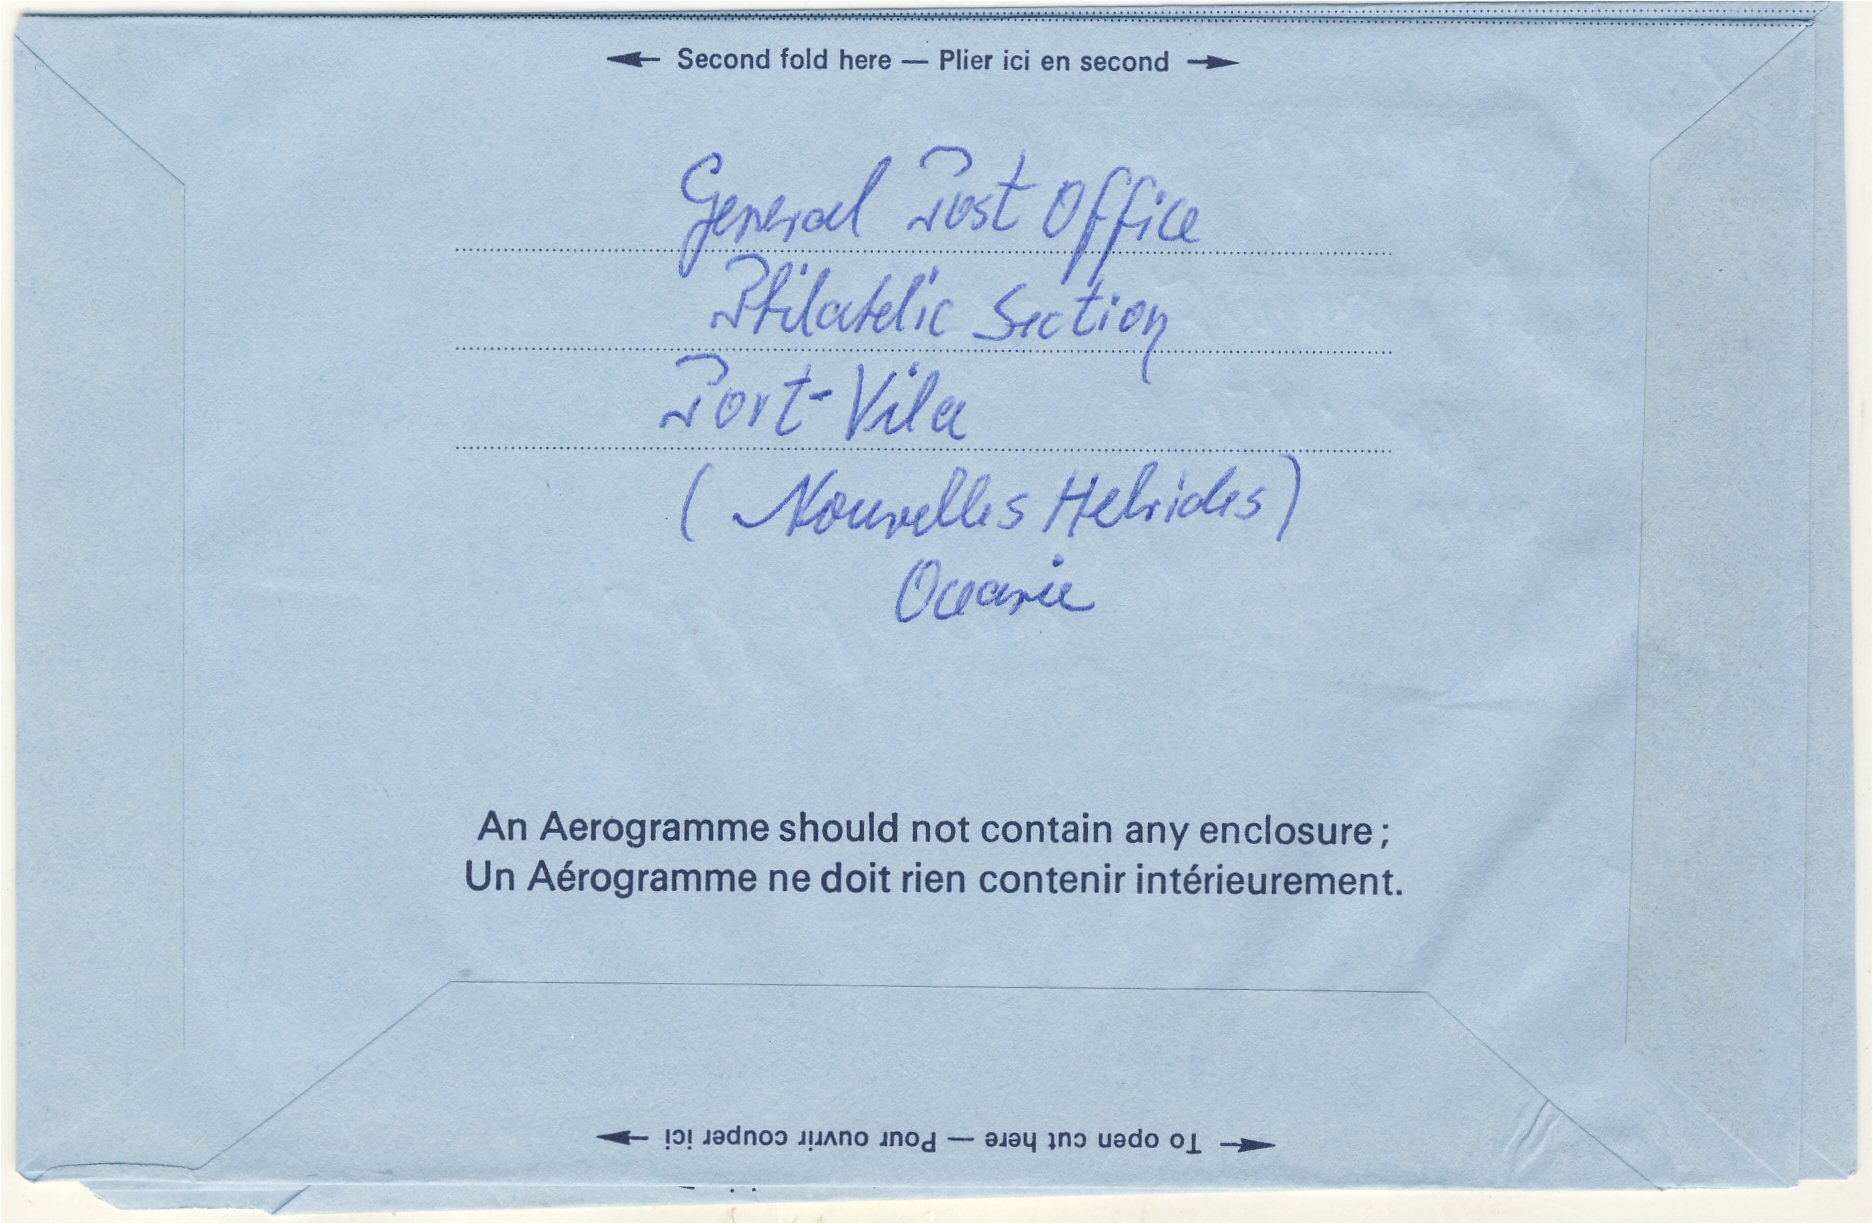 Second fold here — Plier ici en second
General Post Office
Philatelic Section
Port-Vila
(Nouvelles Hebrides)
Oceanie
An Aerogramme should not contain any enclosure;
Un Aérogramme ne doit rien contenir intérieurement.
To open cut here — Pour ouvrir couper ici